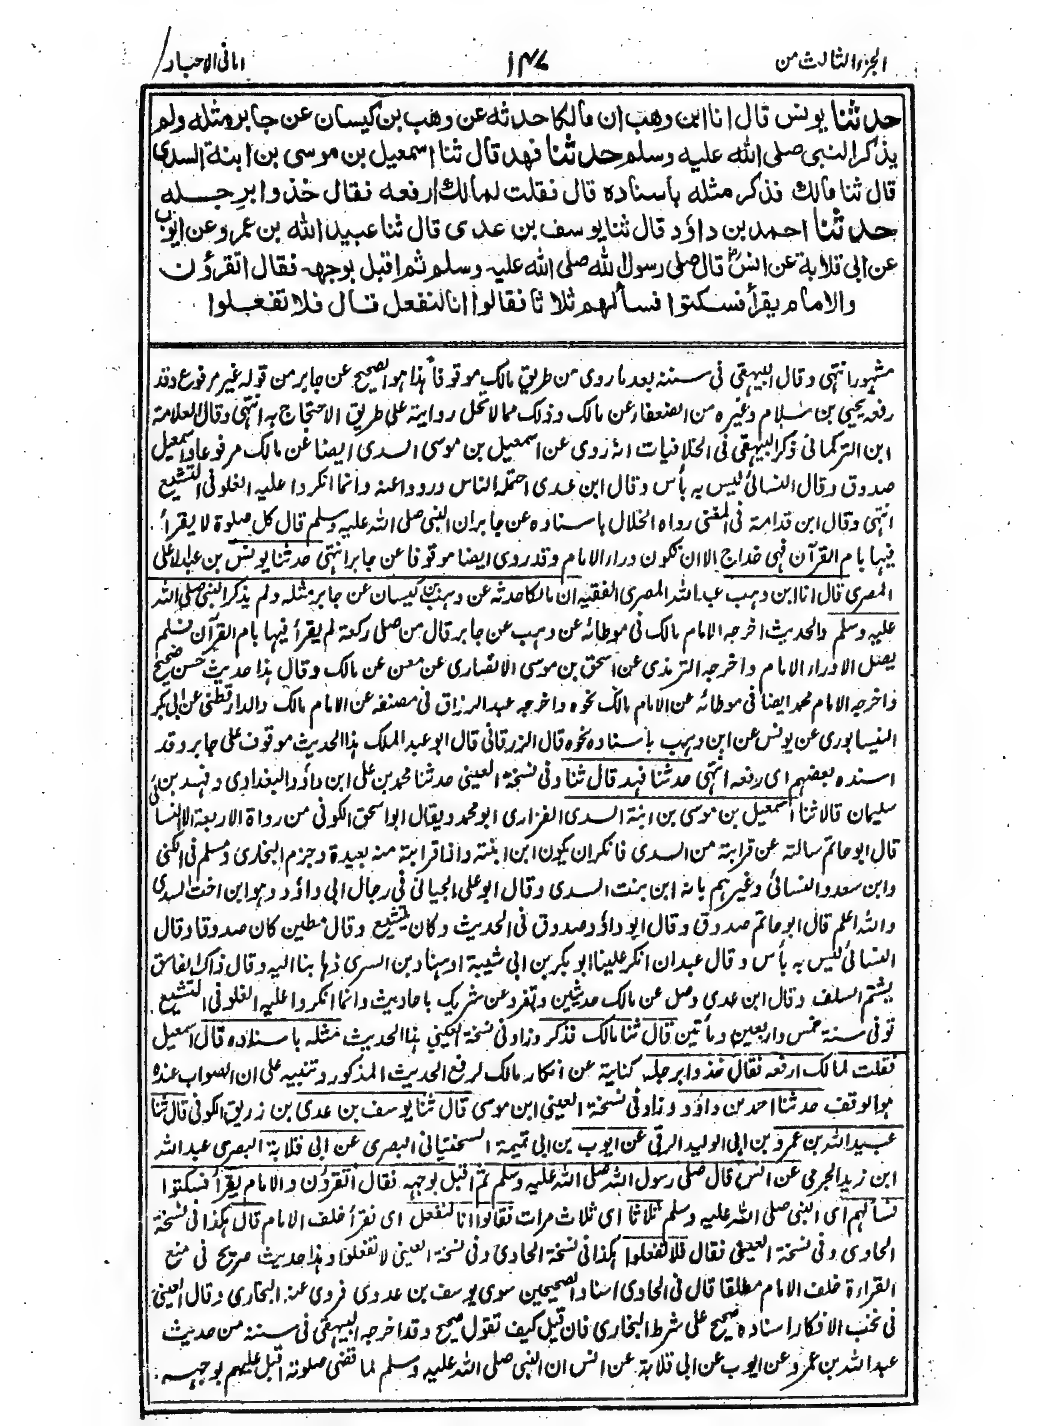 الجزء الثالث من
١٤٧
امانى الاحبار
حدثنا يونس قال انا ابن وهب ان مالكا حدثه عن وهب بن كيسان عن جابر مثله ولم
يذكر النبى صلى الله عليه وسلم حدثنا فهد قال ثنا اسمعيل بن موسى بن ابنة السدى
قال ثنا مالك فذكر مثله باسناده قال فقلت لمالك ارفعه فقال خذوا برجله
حدثنا احمد بن داؤد قال ثنا يوسف بن عدى قال ثنا عبيد الله بن عمرو عن ايوب
عن ابى قلابة عن انس قال صلى رسول الله صلى الله عليه وسلم ثم اقبل بوجهه فقال اتقرؤن
والامام يقرأ فسكتوا فسألهم ثلاثا فقالوا انا لنفعل قال فلا تفعلوا
مشهور انتهى وقال البيهقى فى سننه بعد ما روى من طريق مالك موقوفا هذا هو الصحيح عن جابر من قوله غير مرفوع وقد
رفعه يحيى بن سلام وغيره من الضعفاء عن مالك وذلك مما لا يحل روايته على طريق الاحتجاج به انتهى وقال العلامة
ابن التركمانى ذكر البيهقى فى الخلافيات انه روى عن اسمعيل بن موسى السدى ايضا عن مالك مرفوعا واسمعيل
صدوق وقال النسائى ليس به بأس وقال ابن عدى احتمله الناس ورووا عنه وانما انكروا عليه الغلو فى التشيع
انتهى وقال ابن قدامة فى المغنى رواه الخلال باسناده عن جابر ان النبى صلى الله عليه وسلم قال كل صلوة لا يقرأ
فيها بام القرآن فهى خداج الا ان تكون وراء الامام وقد روى ايضا موقوفا عن جابر انتهى حدثنا يونس بن عبد الاعلى
المصرى قال انا ابن وهب عبد الله المصرى الفقيه ان مالكا حدثه عن وهب بن كيسان عن جابر مثله ولم يذكر النبى صلى الله
عليه وسلم والحديث اخرجه الامام مالك فى موطائه عن وهب عن جابر قال من صلى ركعة لم يقرأ فيها بام القرآن فلم
يصل الا وراء الامام واخرجه الترمذى عن اسحق بن موسى الانصارى عن معن عن مالك وقال هذا حديث حسن صحيح
واخرجه الامام محمد ايضا فى موطائه عن الامام مالك نحوه واخرجه عبد الرزاق فى مصنفه عن الامام مالك والدارقطنى عن ابى بكر
النيسابورى عن يونس عن ابن وهب باسناده نحوه قال الزرقانى قال ابو عبد الملك هذا الحديث موقوف على جابر وقد
اسنده بعضهم اى رفعه انتهى حدثنا فهد قال ثنا وفى نسخة العينى حدثنا محمد بن على ابن داؤد البغدادى وفهد بن
سليمان قالا ثنا اسمعيل بن موسى بن ابنة السدى الفزارى ابو محمد ويقال ابو اسحق الكوفى من رواة الاربعة الا النسائى
قال ابو حاتم سألته عن قرابته من السدى فانكر ان يكون ابن ابنته واذا قرابته منه بعيدة وجزم البخارى ومسلم فى الكنى
وابن سعد والنسائى وغيرهم بانه ابن بنت السدى وقال ابو على الجيانى فى رجال ابى داؤد وهو ابن اخت السدى
والله اعلم قال ابو حاتم صدوق وقال ابو داؤد صدوق فى الحديث وكان يتشيع وقال مطين كان صدوقا وقال
النسائى ليس به بأس وقال عبدان انكر علينا ابو بكر بن ابى شيبة او هناد بن السرى ذهابنا اليه وقال ذاك الفاسق
يشتم السلف وقال ابن عدى وصل عن مالك حديثين وتفرد عن شريك باحاديث وانما انكروا عليه الغلو فى التشيع
توفى سنة خمس واربعين ومأتين قال ثنا مالك فذكر وزاد فى نسخة العينى هذا الحديث مثله باسناده قال اسمعيل
فقلت لمالك ارفعه فقال خذوا برجله كناية عن انكار مالك لرفع الحديث المذكور وتنبيه على ان الصواب عنده
هو الوقف حدثنا احمد بن داؤد وزاد فى نسخة العينى ابن موسى قال ثنا يوسف بن عدى بن زريق الكوفى قال ثنا
عبيد الله بن عمرو بن ابى الوليد الرقى عن ايوب بن ابى تميمة السختيانى البصرى عن ابى قلابة البصرى عبد الله
ابن زيد الجرمى عن انس قال صلى رسول الله صلى الله عليه وسلم ثم اقبل بوجهه فقال اتقرؤن والامام يقرأ فسكتوا
فسألهم اى النبى صلى الله عليه وسلم ثلاثا اى ثلاث مرات فقالوا انا لنفعل اى نقرأ خلف الامام قال هكذا فى نسخة
الحاوى وفى نسخة العينى فقال فلا تفعلوا هكذا فى نسخة الحاوى وفى نسخة العينى لا تفعلوا وهذا حديث صريح فى منع
القراءة خلف الامام مطلقا قال فى الحاوى اسناد الصحيحين سوى يوسف بن عدى فروى عنه البخارى وقال العينى
فى نخب الافكار اسناده صحيح على شرط البخارى فان قيل كيف تقول صحيح وقد اخرجه البيهقى فى سننه من حديث
عبد الله بن عمرو عن ايوب عن ابى قلابة عن انس ان النبى صلى الله عليه وسلم لما قضى صلوته اقبل عليهم بوجهه